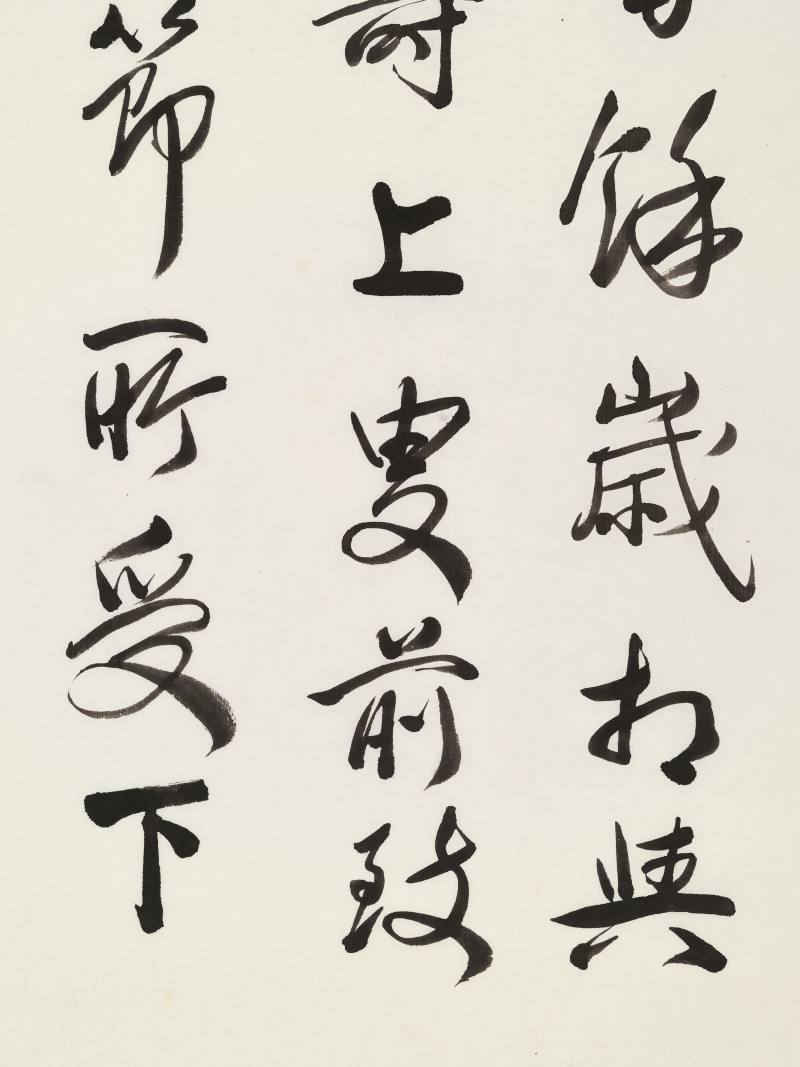 餘歲相與
壽上叟前致
節所受下